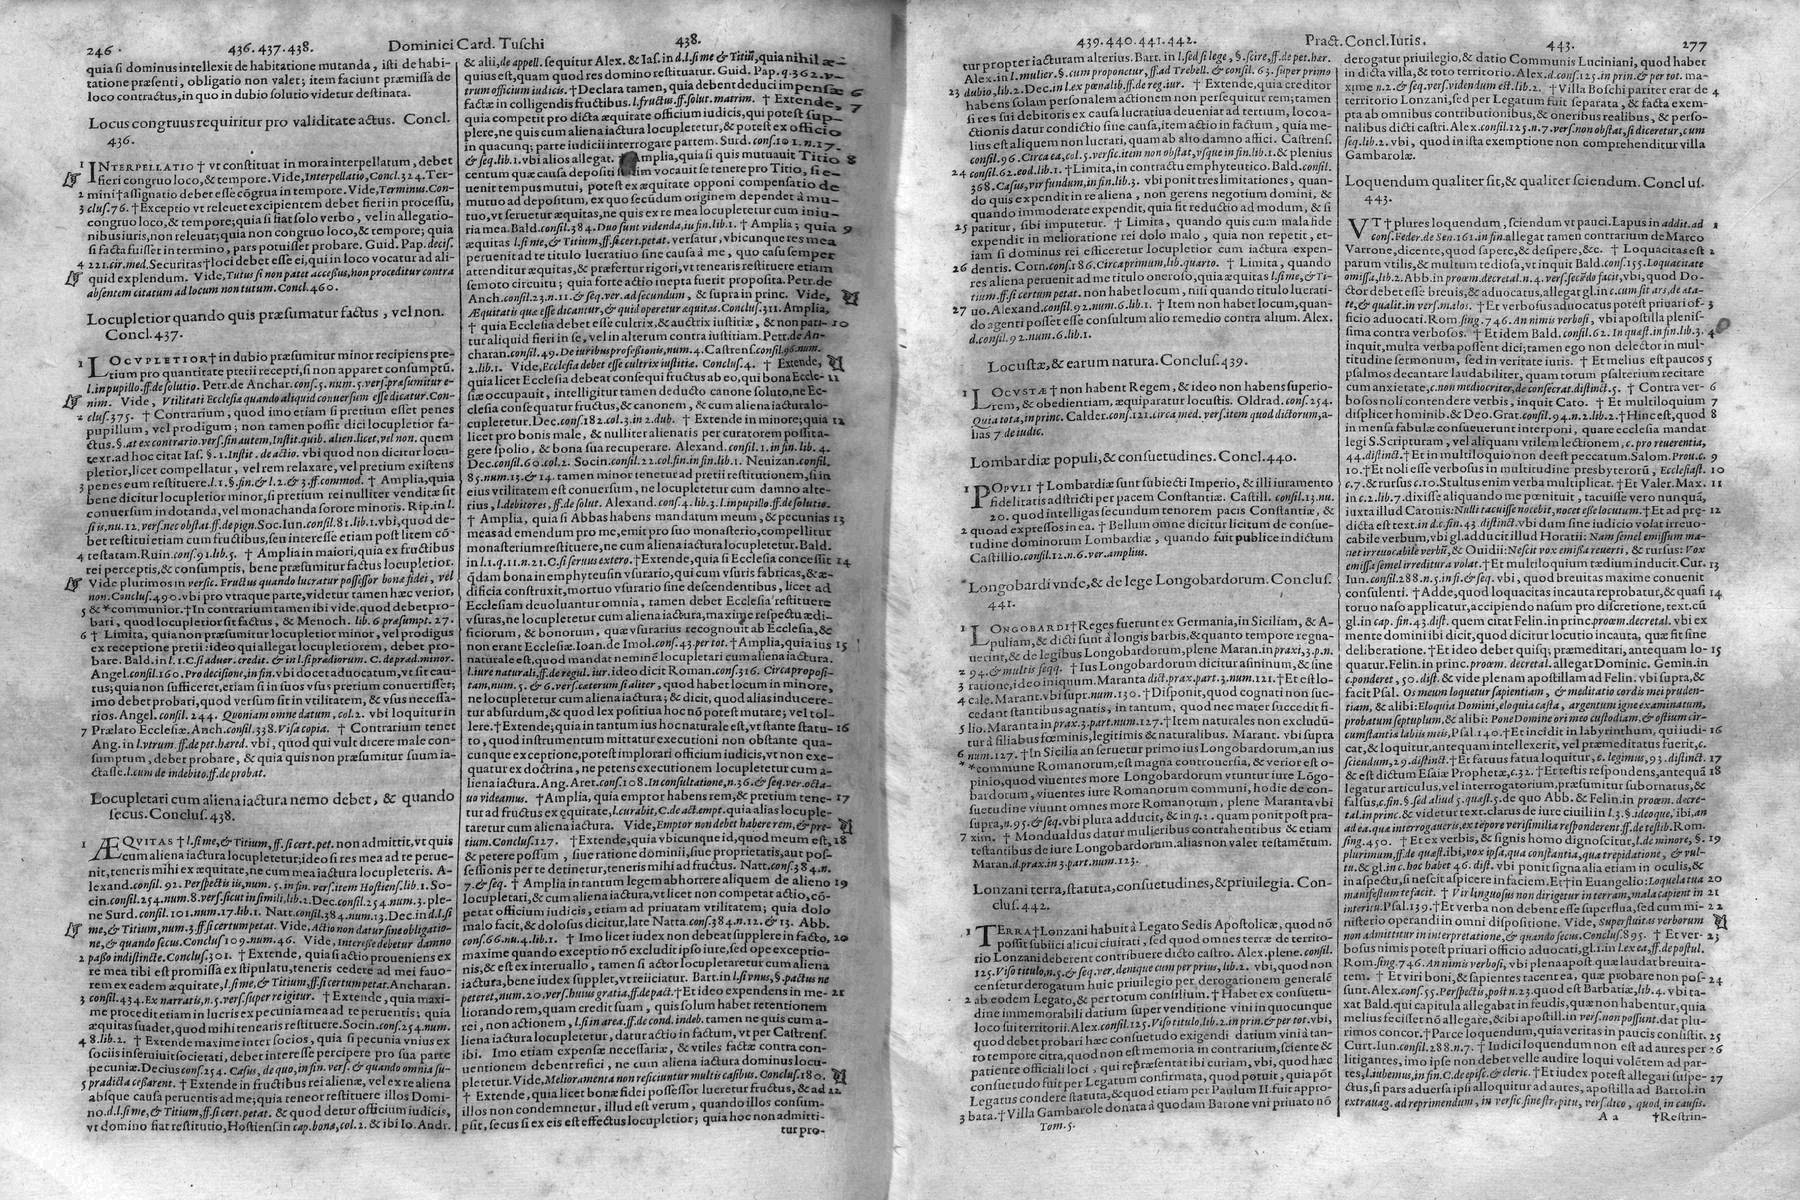 246 436.437.438. Dominici Card. Tuschi 438.
quia si dominus intellexit de habitatione mutanda, isti de habi-
tatione præsenti, obligatio non valet; item faciunt præmissa de
loco contractus, in quo in dubio solutio videtur destinata.
Locus congruus requiritur pro validitate actus. Concl.
436.
1 INTERPELLATIO † vt constituat in mora interpellatum, debet
fieri congruo loco, & tempore. Vide, Interpellatio, Concl. 324. Ter-
2 mini † assignatio debet esse cõgrua in tempore. Vide, Terminus. Con-
3 clus. 76. † Exceptio vt releuet excipientem debet fieri in processu,
congruo loco, & tempore; quia si fiat solo verbo, vel in allegatio-
nibus iuris, non releuat; quia non congruo loco, & tempore; quia
si facta fuisset in termino, pars potuisset probare. Guid. Pap. decis.
4 221. cir. med. Securitas † loci debet esse ei, qui in loco vocatur ad ali-
quid explendum. Vide, Tutus si non patet accessus, non proceditur contra
absentem citatum ad locum non tutum. Concl. 460.
Locupletior quando quis præsumatur factus, vel non.
Concl. 437.
1 LOCVPLETIOR † in dubio præsumitur minor recipiens pre-
tium pro quantitate pretii recepti, si non apparet consumptũ.
l. in pupillo. ff. de solutio. Petr. de Anchar. cons. 5. num. 5. vers. præsumitur e-
nim. Vide, Vtilitati Ecclesia quando aliquid conuersum esse dicatur. Con-
2 clus. 375. † Contrarium, quod imo etiam si pretium esset penes
pupillum, vel prodigum; non tamen possit dici locupletior fa-
ctus. §. at ex contrario. vers. sin autem, Instit. quib. alien. licet, vel non. quem
text. ad hoc citat Ias. §. 1. Instit. de actio. vbi quod non dicitur locu-
pletior, licet compellatur, vel rem relaxare, vel pretium existens
3 penes eum restituere. l. 1. §. fin. & l. 2. & 3. ff. commod. † Amplia, quia
bene dicitur locupletior minor, si pretium rei nulliter venditæ sit
conuersum in dotanda, vel monachanda sorore minoris. Rip. in l.
si is, nu. 12. vers. nec obstat. ff. de pign. Soc. Iun. consil. 81. lib. 1. vbi, quod de-
bet restitui etiam cum fructibus, seu interesse etiam post litem cõ-
4 testatam. Ruin. cons. 91. lib. 5. † Amplia in maiori, quia ex fructibus
rei perceptis, & consumptis, bene præsumitur factus locupletior.
Vide plurimos in versic. Fructus quando lucratur possessor bonæ fidei, vel
non. Conclus. 490. vbi pro vtraque parte, videtur tamen hæc verior,
5 & * communior. † In contrarium tamen ibi vide, quod debet pro-
bari, quod locupletior sit factus, & Menoch. lib. 6. præsumpt. 27.
6 † Limita, quia non præsumitur locupletior minor, vel prodigus
ex receptione pretii: ideo qui allegat locupletiorem, debet pro-
bare. Bald. in l. 1. C. si aduer. credit. & in l. si prædiorum. C. de prad. minor.
Angel. consil. 160. Pro decisione, in fin. vbi docet aduocatum, vt sit cau-
tus; quia non sufficeret, etiam si in suos vsus pretium conuertisset;
imo debet probari, quod versum sit in vtilitatem, & vsus necessa-
rios. Angel. consil. 244. Quoniam omne datum, col. 2. vbi loquitur in
7 Prælato Ecclesiæ. Anch. consil. 338. Visa copia. † Contrarium tenet
Ang. in l. vtrum. ff. de pet. hared. vbi, quod qui vult dicere male con-
sumptum, debet probare, & quia quis non præsumitur suum ia-
ctasse. l. cum de indebito. ff. de probat.
Locupletari cum aliena iactura nemo debet, & quando
secus. Conclus. 438.
1 ÆQVITAS † l. si me, & Titium, ff. si cert. pet. non admittit, vt quis
cum aliena iactura locupletetur; ideo si res mea ad te perue-
nit, teneris mihi ex æquitate, ne cum mea iactura locupleteris. A-
lexand. consil. 92. Perspectis iis, num. 5. in fin. vers. item Hostiens. lib. 1. So-
cin. consil. 254. num. 8. vers. sicut in simili, lib. 2. Dec. consil. 254. num. 3. ple-
ne Surd. consil. 101. num. 17. lib. 1. Natt. consil. 384. num. 13. Dec. in d. l. si
me, & Titium, num. 3. ff. si certum petat. Vide, Actio non datur sine obligatio-
ne, & quando secus. Conclus. 109. num. 46. Vide, Interesse debetur damno
2 passo indistincte. Conclus. 301. † Extende, quia si actio proueniens ex
re mea tibi est promissa ex stipulatu, teneris cedere ad mei fauo-
rem ex eadem æquitate, l. si me, & Titium, ff. si certum petat. Ancharan.
3 consil. 434. Ex narratis, n. 5. vers. super reigitur. † Extende, quia maxi-
me procedit etiam in lucris ex pecunia mea ad te peruentis; quia
æquitas suadet, quod mihi tenearis restituere. Socin. cons. 254. num.
4 8. lib. 2. † Extende maxime inter socios, quia si pecunia vnius ex
sociis inseruiuit societati, debet interesse percipere pro sua parte
pecuniæ. Decius consil. 254. Casus, de quo, in fin. vers. & quando omnia su-
5 pradicta cessarent. † Extende in fructibus rei alienæ, vel ex re aliena
absque causa peruentis ad me; quia teneor restituere illos Domi-
no. d. l. si me, & Titium, ff. si cert. petat. & quod detur officium iudicis,
vt domino fiat restitutio, Hostiens. in cap. bona, col. 2. & ibi Io. Andr.
& alii, de appell. sequitur Alex. & Ias. in d. l. si me & Titiũ, quia nihil æ-
quius est, quam quod res domino restituatur. Guid. Pap. q. 362. v-
trum officium iudicis. † Declara tamen, quia debent deduci impensæ 6
factæ in colligendis fructibus. l. fructus. ff. solut. matrim. † Extende, 7
quia competit pro dicta æquitate officium iudicis, qui potest sup-
plere, ne quis cum aliena iactura locupletetur, & potest ex officio
in quacunq; parte iudicii interrogare partem. Surd. cons. 101. n. 17.
& seq. lib. 1. vbi alios allegat. † Amplia, quia si quis mutuauit Titio 8
centum quæ causa depositi vocauit se tenere pro Titio, si e-
uenit tempus mutui, potest ex æquitate opponi compensatio de
mutuo ad depositum, ex quo secũdum originem dependet à mu-
tuo, vt seruetur æquitas, ne quis ex re mea locupletetur cum iniu-
ria mea. Bald. consil. 384. Duo sunt videnda, iu fin. lib. 1. † Amplia; quia 9
æquitas l. si me, & Titium, ff. si cert. petat. versatur, vbicunque res mea
peruenit ad te titulo lucratiuo sine causa à me, quo casu semper
attenditur æquitas, & præfertur rigori, vt tenearis restituere etiam
semoto circuitu; quia forte actio inepta fuerit proposita. Petr. de
Anch. consil. 23. n. 11. & seq. ver. ad secundum, & supra in princ. Vide,
Æquitatis quæ esse dicantur, & quid operetur æquitas. Conclus. 311. Amplia,
† quia Ecclesia debet esse cultrix, & auctrix iustitiæ, & non pati- 10
tur aliquid fieri in se, vel in alterum contra iustitiam. Petr. de An-
charan. consil. 49. De iuribus professionis, num. 4. Castrens. consil. 96. num.
2. lib. 1. Vide, Ecclesia debet esse cultrix iustitiæ. Conclus. 4. † Extende,
quia licet Ecclesia debeat consequi fructus ab eo, qui bona Eccle- 11
siæ occupauit, intelligitur tamen deducto canone soluto, ne Ec-
clesia consequatur fructus, & canonem, & cum aliena iactura lo-
cupletetur. Dec. consil. 182. col. 3. in 2. dub. † Extende in minore; quia 12
licet pro bonis male, & nulliter alienatis per curatorem possit a-
gere spolio, & bona sua recuperare. Alexand. consil. 1. in fin. lib. 4.
Dec. consil. 60. col. 2. Socin. consil. 22. col. fin. in fin. lib. 1. Neuizan. consil.
85. num. 13. & 14. tamen minor tenetur ad pretii restitutionem, si in
eius vtilitatem est conuersum, ne locupletetur cum damno alte-
rius, l. debitores, ff. de solut. Alexand. cons. 4. lib. 3. l. in pupillo. ff. de solutio.
† Amplia, quia si Abbas habens mandatum meum, & pecunias 13
meas ad emendum pro me, emit pro suo monasterio, compellitur
monasterium restituere, ne cum aliena iactura locupletetur. Bald.
in l. 1. q. 11. n. 21. C. si seruus extero. † Extende, quia si Ecclesia concessit 14
q̃dam bona in emphyteusin vsurario, qui cum vsuris fabricas, & æ-
dificia construxit, mortuo vsurario sine descendentibus, licet ad
Ecclesiam deuoluantur omnia, tamen debet Ecclesia restituere
vsuras, ne locupletetur cum aliena iactura, maxime respectu ædi-
ficiorum, & bonorum, quæ vsurarius recognouit ab Ecclesia, &
non erant Ecclesiæ. Ioan. de Imol. cons. 43. per tot. † Amplia, quia ius 15
naturale est, quod mandat neminẽ locupletari cum aliena iactura.
l. iure naturali, ff. de regul. iur. ideo dicit Roman. cons. 316. Circa proposi-
tam, num. 5. & 6. vers. cæterum saliter, quod habet locum in minore,
ne locupletetur cum aliena iactura; & dicit, quod alias induceretur
tur absurdum, & quod lex positiua hoc nõ potest mutare; vel tol-
lere. † Extende; quia in tantum ius hoc naturale est, vt stante statu- 16
to, quod instrumentum mittatur executioni non obstante qua-
cunque exceptione, potest implorari officium iudicis, vt non exe-
quatur ex doctrina, ne petens executionem locupletetur cum a-
liena iactura. Ang. Aret. cons. 108. In consultatione, n. 36. & seq. ver. octa-
uo videamus. † Amplia, quia emptor habens rem, & pretium tene- 17
tur ad fructus ex equitate, l. curabit, C. de act. empt. quia alias locuple-
taretur cum aliena iactura. Vide, Emptor non debet habere rem, & pre-
tium. Conclus. 127. † Extende, quia vbicunque id, quod meum est, 18
& petere possum, siue ratione dominii, siue proprietatis, aut pos-
sessionis per te detinetur, teneris mihi ad fructus. Natt. cons. 384. n.
7. & seq. † Amplia in tantum legem abhorrere aliquem de alieno 19
locupletari, & cum aliena iactura, vt licet non competat actio, cõ-
petat officium iudicis, etiam ad priuatam vtilitatem; quia dolo
malo facit, & dolosus dicitur, late Natta cons. 384. n. 12. & 13. Abb.
cons. 66. nu. 4. lib. 1. † Imo licet iudex non debeat supplere in facto, 20
maxime quando exceptio nõ excludit ipso iure, sed ope exceptio-
nis, & est ex interuallo, tamen si actor locupletaretur cum aliena
iactura, bene iudex supplet, vt reiiciatur. Bart. in l. si vnus, §. pactus ne
peteret, num. 20. vers. huius gratia, ff. de pact. † Et ideo expendens in me- 21
liorando rem, quam credit suam, quis solum habet retentionem
rei, non actionem, l. si in area. ff. de cond. indeb. tamen ne quis cum a-
liena iactura locupletetur, datur actio in factum, vt per Castrens.
ibi. Imo etiam expensæ necessariæ, & vtiles factæ contra con-
uentionem debent refici, ne cum aliena iactura dominus locu-
pletetur. Vide, Melioramenta non reficiuntur multis casibus. Conclus. 180.
† Extende, quia licet bonæ fidei possessor lucretur fructus, & ad 22
illos non condemnetur, illud est verum, quando illos consum-
psit, secus si ex eis est effectus locupletior; quia hoc non admitti-
tur pro-
439.440.441.442. Pract. Concl. Iuris. 443. 277
tur propter iacturam alterius. Bart. in l. sed si lege, §. scire, ff. de pet. hær.
Alex. in l. mulier. §. cum proponetur, ff. ad Trebell. & consil. 63. super primo
23 dubio, lib. 2. Dec. in l. ex pœnalib. ff. de reg. iur. † Extende, quia creditor
habens solam personalem actionem non persequitur rem; tamen
si res sui debitoris ex causa lucratiua deueniat ad tertium, loco a-
ctionis datur condictio sine causa, item actio in factum, quia me-
lius est aliquem non lucrari, quam ab alto damno affici. Castrens.
consil. 96. Circa ea, col. 5. versic. item non obstat, vsque in fin. lib. 1. & plenius
24 consil. 62. eod. lib. 1. † Limita, in contractu emphyteutico. Bald. consil.
368. Casus, vir fundum, in fin. lib. 3. vbi ponit tres limitationes, quan-
do quis expendit in re aliena, non gerens negotium domini, &
quando immoderate expendit, quia sit reductio ad modum, & si
25 patitur, sibi imputetur. † Limita, quando quis cum mala fide
expendit in melioratione rei dolo malo, quia non repetit, et-
iam si dominus rei efficeretur locupletior cum iactura expen-
26 dentis. Corn. cons. 186. Circa primum, lib. quarto. † Limita, quando
res aliena peruenit ad me titulo oneroso, quia æquitas l. si me, & Ti-
tium. ff. si certum petat. non habet locum, nisi quando titulo lucrati-
27 uo. Alexand. consil. 92. num. 6. lib. 1. † Item non habet locum, quan-
do agenti posset esse consultum alio remedio contra alium. Alex.
d. consil. 92. num. 6. lib. 1.
Locustæ, & earum natura. Conclus. 439.
1 LOCVSTÆ † non habent Regem, & ideo non habens superio-
rem, & obedientiam, æquiparatur locustis. Oldrad. cons. 254.
Quia tota, in princ. Calder. cons. 121. circa med. vers. item quod dictorum, a-
lias 7. de iudic.
Lombardiæ populi, & consuetudines. Concl. 440.
1 POPVLI † Lombardiæ sunt subiecti Imperio, & illi iuramento
fidelitatis adstricti per pacem Constantiæ. Castill. consil. 13. nu.
20. quod intelligas secundum tenorem pacis Constantiæ, &
2 quoad expressos in ea. † Bellum omne dicitur licitum de consue-
tudine dominorum Lombardiæ, quando fuit publice indictum
Castillio. consil. 12. n. 6. ver. amplius.
Longobardi vnde, & de lege Longobardorum. Conclus.
441.
1 LONGOBARDI † Reges fuerunt ex Germania, in Siciliam, & A-
puliam, & dicti sunt à longis barbis, & quanto tempore regna-
uerint, & de legibus Longobardorum, plene Maran. in praxi, 3. p. n.
2 94. & multis seqq. † Ius Longobardorum dicitur asininum, & sine
3 ratione, ideo iniquum. Maranta dict. prax. part. 3. num. 121. † Et est lo-
4 cale. Marant. vbi supr. num. 130. † Disponit, quod cognati non suc-
cedant stantibus agnatis, in tantum, quod nec mater succedit fi-
5 lio. Maranta in prax. 3. part. num. 127. † Item naturales non excludũ-
tur à filiabus fœminis, legitimis & naturalibus. Marant. vbi supra
6 num. 127. † In Sicilia an seruetur primo ius Longobardorum, an ius
* * commune Romanorum, est magna controuersia, & verior est o-
pinio, quod viuentes more Longobardorum vtuntur iure Lõgo-
bardorum, viuentes iure Romanorum communi, hodie de con-
suetudine viuunt omnes more Romanorum, plene Maranta vbi
supra, n. 95. & seq. vbi plura adducit, & in q. 1. quam ponit post pra-
7 xim. † Mondualdus datur mulieribus contrahentibus & etiam
testantibus de iure Longobardorum, alias non valet testamẽtum.
Maran. d. prax. in 3. part. num. 123.
Lonzani terra, statuta, consuetudines, & priuilegia. Con-
clus. 442.
1 TERRA † Lonzani habuit à Legato Sedis Apostolicæ, quod nõ
possit subiici alicui ciuitati, sed quod omnes terræ de territo-
rio Lonzani deberent contribuere dicto castro. Alex. plene. consil.
125. Viso titulo, n. 5. & seq. ver, denique cum per prius, lib. 2. vbi, quod non
censetur derogatum huic priuilegio per derogationem generalẽ
2 ab eodem Legato, & per totum consilium. † Habet ex consuetu-
dine immemorabili datium super venditione vini in quocunque
loco sui territorii. Alex. consil. 125. Viso titulo, lib. 2. in prin. & per tot. vbi,
quod debet probari hæc consuetudo exigendi datium vini à tan-
to tempore citra, quod non est memoria in contrarium, sciente &
patiente officiali loci, qui repræsentat ibi curiam, vbi, quod hæc
consuetudo fuit per Legatum confirmata, quod potuit, quia põt
Legatus condere statuta, & quod etiam per Paulum II. fuit appro-
3 bata. † Villa Gambarole donata à quodam Barone vni priuato nõ
derogatur priuilegio, & datio Communis Luciniani, quod habet
in dicta villa, & toto territorio. Alex. d. cons. 125. in prin. & per tot. ma-
xime n. 2. & seq. vers. videndum est. lib. 2. † Villa Boschi pariter erat de 4
territorio Lonzani, sed per Legatum fuit separata, & facta exem-
pta ab omnibus contributionibus, & oneribus realibus, & perso-
nalibus dicti castri. Alex. consil. 125. n. 7. vers. non obstat, si diceretur, cum
seq. lib. 2. vbi, quod in ista exemptione non comprehenditur villa
Gambarolæ.
Loquendum qualiter sit, & qualiter sciendum. Conclus.
443.
VT † plures loquendum, sciendum vt pauci. Lapus in addit. ad 1
cons. Feder. de Sen. 161. in fin. allegat tamen contrarium de Marco
Varrone, dicente, quod sapere, & desipere, &c. † Loquacitas est 2
parum vtilis, & multum tediosa, vt inquit Bald. cons. 155. Loquacitate
omissa, lib. 2. Abb. in proœm. decretal. n. 4. vers. secũdo facit, vbi, quod Do-
ctor debet esse breuis, & aduocatus, allegat gl. in c. cum sit ars, de æta-
te, & qualit. in vers. malos. † Et verbosus aduocatus potest priuari of- 3
ficio aduocati. Rom. sing. 746. An nimis verbosi, vbi apostilla plenis-
sima contra verbosos. † Et idem Bald. consil. 62. In quæst. in fin. lib. 3. 4
inquit, multa verba possent dici; tamen ego non delector in mul-
titudine sermonum, sed in veritate iuris. † Et melius est paucos 5
psalmos decantare laudabiliter, quam totum psalterium recitare
cum anxietate, c. non mediocriter, de consecrat. distinct. 5. † Contra ver- 6
bosos noli contendere verbis, inquit Cato. † Et multiloquium 7
displicet hominib. & Deo. Grat. consil. 94. n. 2. lib. 2. † Hinc est, quod 8
in mensa fabulæ consueuerunt interponi, quare ecclesia mandat
legi S. Scripturam, vel aliquam vtilem lectionem, c. pro reuerentia,
44. distinct. † Et in multiloquio non deest peccatum. Salom. Prou. c. 9
10. † Et noli esse verbosus in multitudine presbyterorũ, Ecclesiast. 10
c. 7. & rursus c. 10. Stultus enim verba multiplicat. † Et Valer. Max. 11
in c. 2. lib. 7. dixisse aliquando me pœnituit, tacuisse vero nunquã,
iuxta illud Catonis: Nulli tacuisse nocebit, nocet esse locutum. † Et ad prę- 12
dicta est text. in d. c. fin. 43. distinct. vbi dum sine iudicio volat irreuo-
cabile verbum, vbi gl. adducit illud Horatii: Nam semel emissum ma-
net irreuocabile verbũ, & Ouidii: Nescit vox emissa reuerti, & rursus: Vox
emissa semel irreditura volat. † Et multiloquium tædium inducit. Cur. 13
Iun. consil. 288. n. 5. in fi. & seq. vbi, quod breuitas maxime conuenit
consulenti. † Adde, quod loquacitas incauta reprobatur, & quasi 14
tortuo naso applicatur, accipiendo nasum pro discretione, text. cũ
gl. in cap. fin. 43. dist. quem citat Felin. in princ. proœm. decretal. vbi ex
mente domini ibi dicit, quod dicitur locutio incauta, quæ fit sine
deliberatione. † Et ideo debet quisq; præmeditari, antequam lo- 15
quatur. Felin. in princ. proœm. decretal. allegat Dominic. Gemin. in
c. ponderet, 50. dist. & vide plenam apostillam ad Felin. vbi supra, &
facit Psal. Os meum loquetur sapientiam, & meditatio cordis mei pruden-
tiam, & alibi: Eloquia Domini, eloquia casta, argentum igne examinatum,
probatum septuplum. & alibi: Pone Domine ori meo custodiam, & ostium cir-
cumstantia labiis meis, Psal. 140. † Et incidit in labyrinthum, qui iudi- 16
cat, & loquitur, antequam intellexerit, vel præmeditatus fuerit, c.
sciendum, 29. distinct. † Et fatuus fatua loquitur, c. legimus, 93. distinct. 17
& est dictum Esaiæ Prophetæ, c. 32. † Et testis respondens, antequã 18
legatur articulus, vel interrogatorium, præsumitur subornatus, &
falsus, c. fin. §. sed aliud 5. quæst. 5. de quo Abb. & Felin. in proœm. decre-
tal. in princ. & videtur text. clarus de iure ciuili in l. 3. §. ideoque, ibi, an
ad ea. quæ interrogaueris, ex tẽpore verisimilia responderent. ff. de testib. Rom.
sing. 450. † Et ex verbis, & signis homo dignoscitur, l. de minore, §. 19
plurimum, ff. de quæst. ibi, vox ipsa, qua constantia, qua trepidatione, & vul-
tu, & gl. in c. hoc habet 46. dist. vbi ponit signa alia etiam in oculis, &
in aspectu, si nescit aspicere in faciem. Et † in Euangelio: Loquela tua 20
manifestum te facit. † Vir linguosus non dirigetur in terram, mala capient in 21
interitu. Psal. 139. † Et verba non debent esse superflua, sed cum mi- 22
nisterio operandi in omni dispositione. Vide, Superfluitas verborum
non admittitur in interpretatione, & quando secus. Conclus. 895. † Et ver- 23
bosus nimis potest priuari officio aduocati, gl. 1. in l. ex ea, ff. de postul.
Rom. sing. 746. An nimis verbosi, vbi plena apost. quæ laudat breuita-
tem. † Et viri boni, & sapientes tacent ea, quæ probare non pos- 24
sunt. Alex. cons. 55. Perspectis, post n. 23. quod est Barbatiæ, lib. 4. vbi ta-
xat Bald. qui capitula allegabat in feudis, quæ non habentur, quia
melius fecisset nõ allegare, & ibi apostill. in vers. non possunt. dat plu-
rimos concor. † Parce loquendum, quia veritas in paucis consistit. 25
Curt. Iun. consil. 288. n. 7. † Iudici loquendum non est ad aures per 26
litigantes, imo ipse non debet velle audire loqui volẽtem ad par-
tes, l. iubemus, in fin. C. de episc. & cleric. † Et iudex potest allegari suspe- 27
ctus, si pars aduersa ipsi alloquitur ad aures, apostilla ad Bartol. in
extrauag. ad reprimendum, in versic. sine strepitu, vers. duo, quod, in causis.
Tom. 5. A a † Restrin-